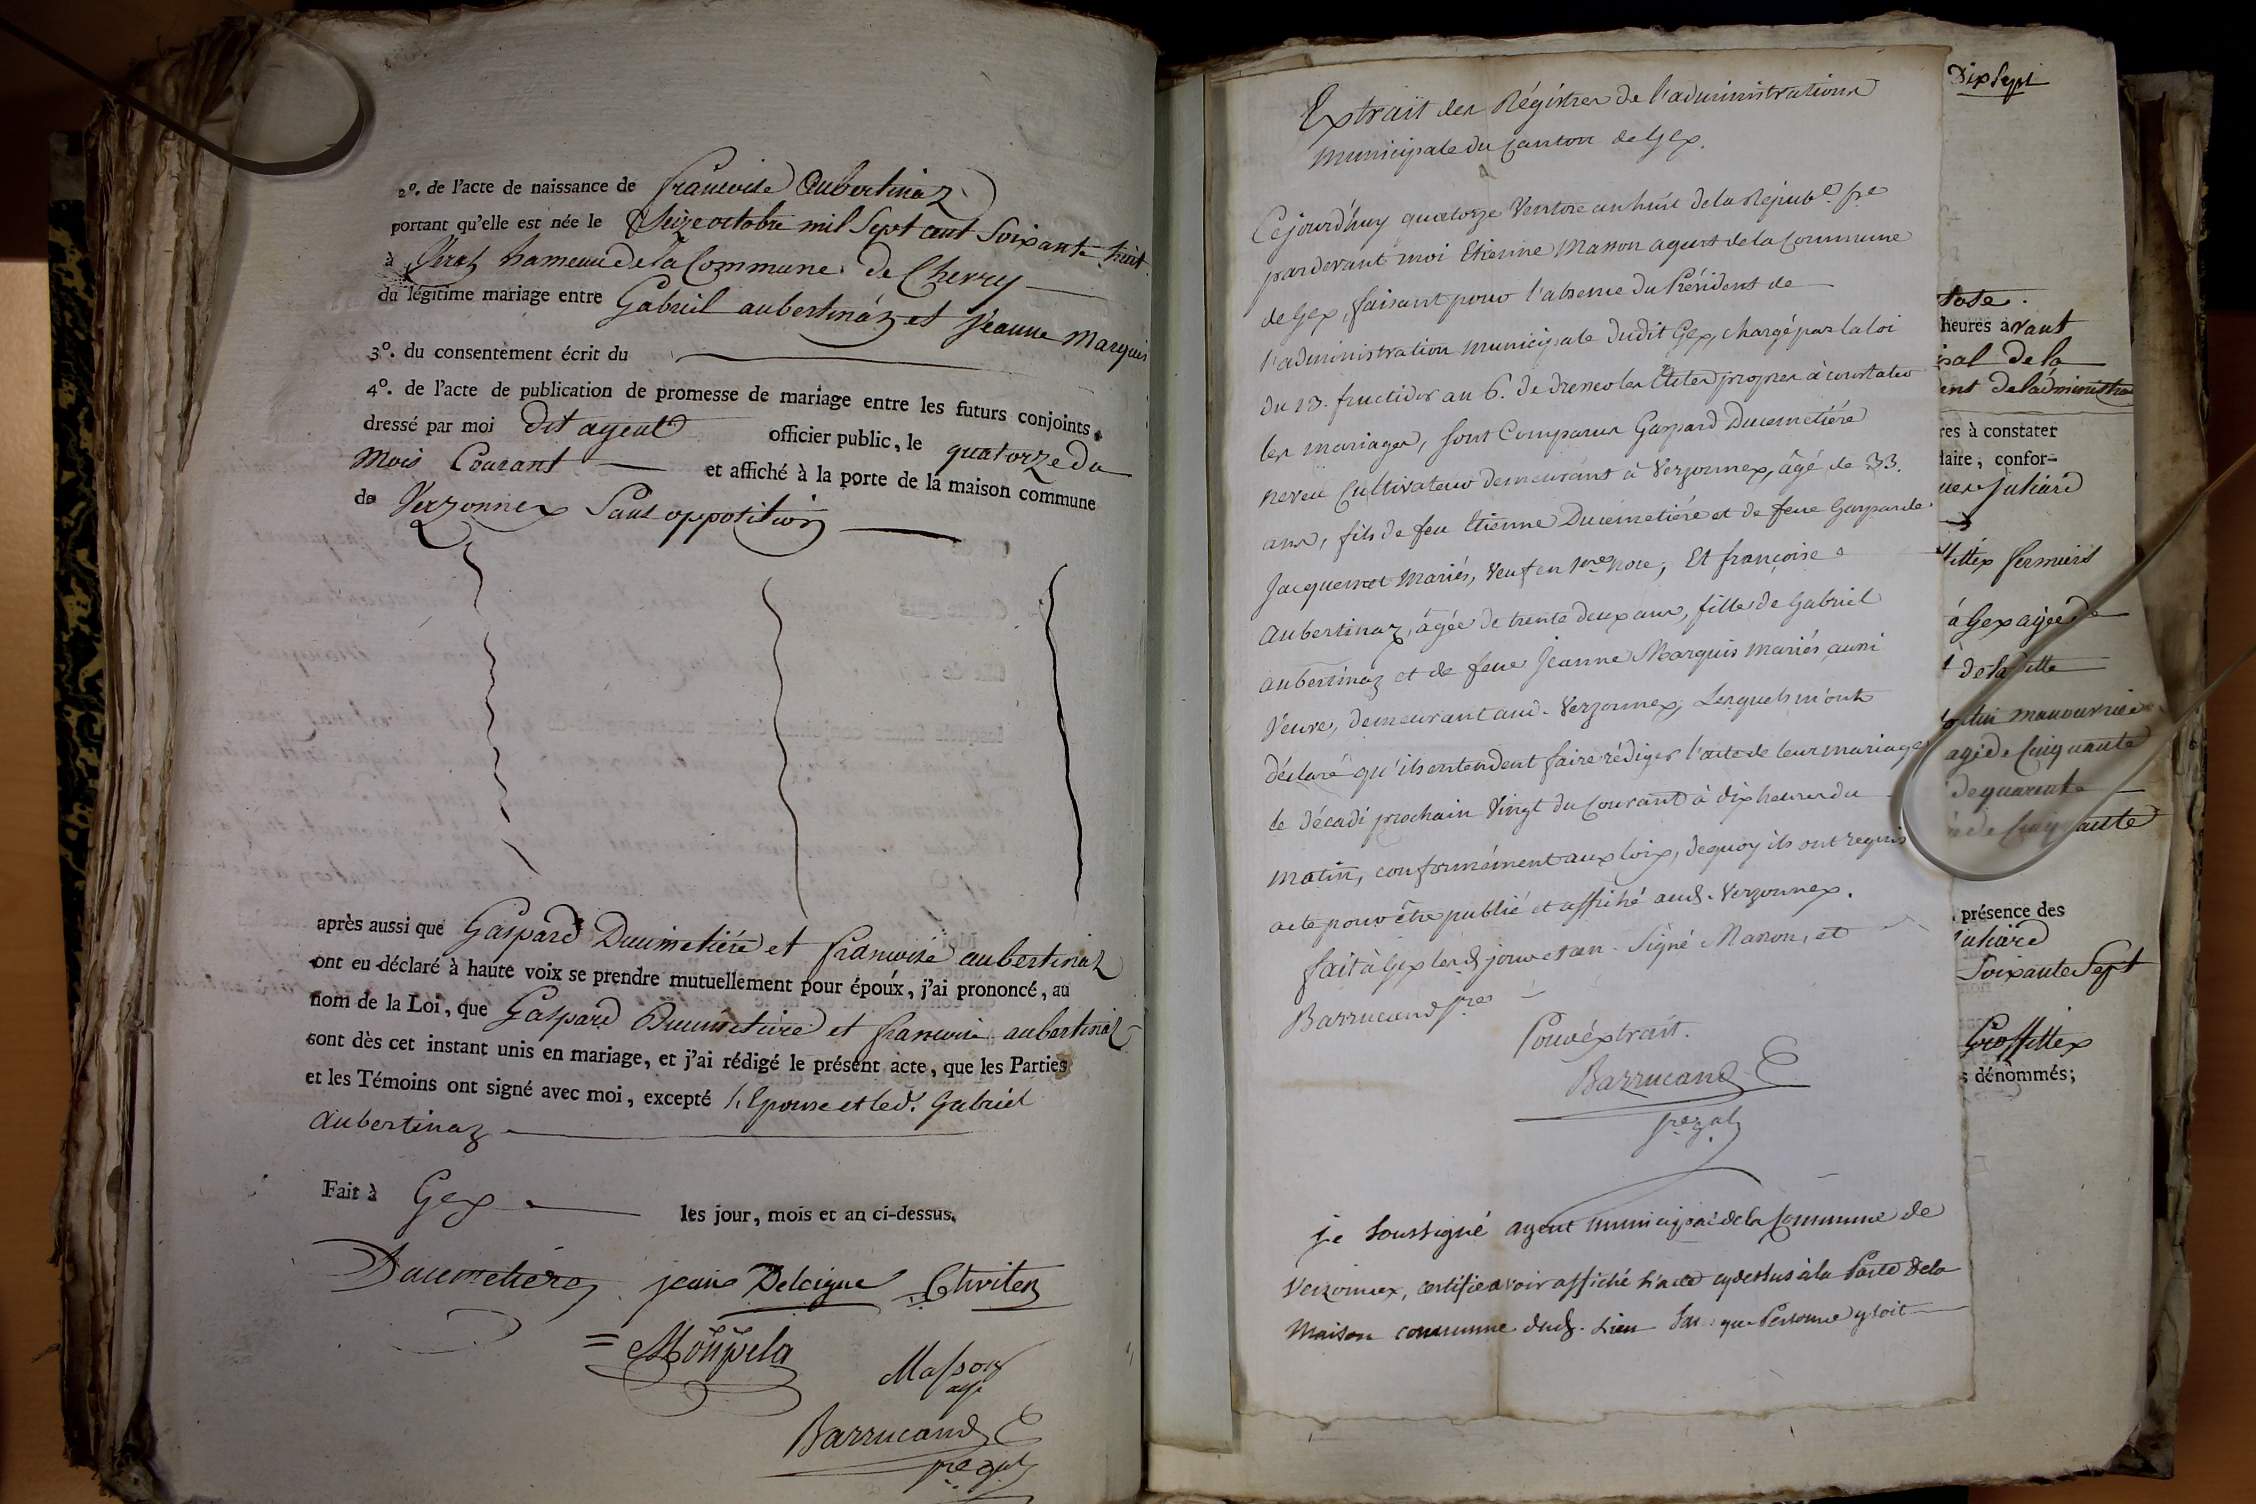 2º. de l'acte de naissance de francoise Aubertinaz
portant qu'elle est née le Seize octobre mil Sept cent Soixante huit
à Veraz hameau de la Commune de Chevry
du légitime mariage entre Gabriel aubertináz et Jeanne Marquis
3º. du consentement écrit du
4º. de l'acte de publication de promesse de mariage entre les futurs conjoints,
dressé par moi dit agent officier public, le quatorze du
Mois Courant et affiché à la porte de la maison commune
de Verzonnex Sans opposition
après aussi que Gaspard Ducimetiére et francoise aubertinaz
ont eu déclaré à haute voix se prendre mutuellement pour époux, j'ai prononcé, au
nom de la Loi, que Gaspard Ducimetiére et francoise aubertinaz
sont dès cet instant unis en mariage, et j'ai rédigé le présent acte, que les Parties
et les Témoins ont signé avec moi, excepté l'Epouse et led. Gabriel
Aubertinaz
Fait à Gex les jour, mois et an ci-dessus.
Ducimetiére jean Delcigne
Masson
agt
Barrucand
Extrait des Régistres de l'administration
Municipale du Canton de Gex.
Cejourd'huy quatorze Ventose an huit de la Répub.e fr.e
pardevant moi Etienne Masson agent de la Commune
de Gex, faisant pour l'absence du Président de
l'administration municipale dudit Gex, chargé par la loi
du 13. fructidor an 6. de dresser les Actes propres à constater
les mariages, sont Comparus Gaspard Ducimetiére
neveu Cultivateur demeurant à Verzonnex, âgé de 33.
ans, fils de feu Etienne Ducimetiére et de feue Gasparde
Jacquemet Mariés, Veuf en 1eres noce; Et françoise
Aubertinaz, âgée de trente deux ans, fille de Gabriel
aubertinaz et de feue Jeanne Marquis mariés, aussi
Veuve, demeurant aud. Verzonnex, Lesquels m'ont
déclaré qu'ils entendent faire rédiger l'acte de leur mariage
le décadi prochain Vingt du Courant à dix heures du
matin, conformément aux loix, dequoy ils ont requis
acte pour être publié et affiché aud. Verzonnex.
fait à Gex les d. jour et an. Signé Masson, et
Barrucand s.re
Pour éxtrait.
Barrucand
s.re g.al
je Soussigné agent municipal de la Commune de
Verzonnex, certifie avoir affiché l'acte cydessus à la Porte de la
Maison commune dud. Lieu sans que Personne y soit
Dix Sept
tose.
heures avant
pal de la
ent de l'administra
res à constater
laire, confor-
Juliard
fermiers
à Gex agée de
de la ville
manouvrier
agé de Cinquante
de quarente
de Cinquante
présence des
Juliard
Soixante Sept
Grossillex
s dénommés;